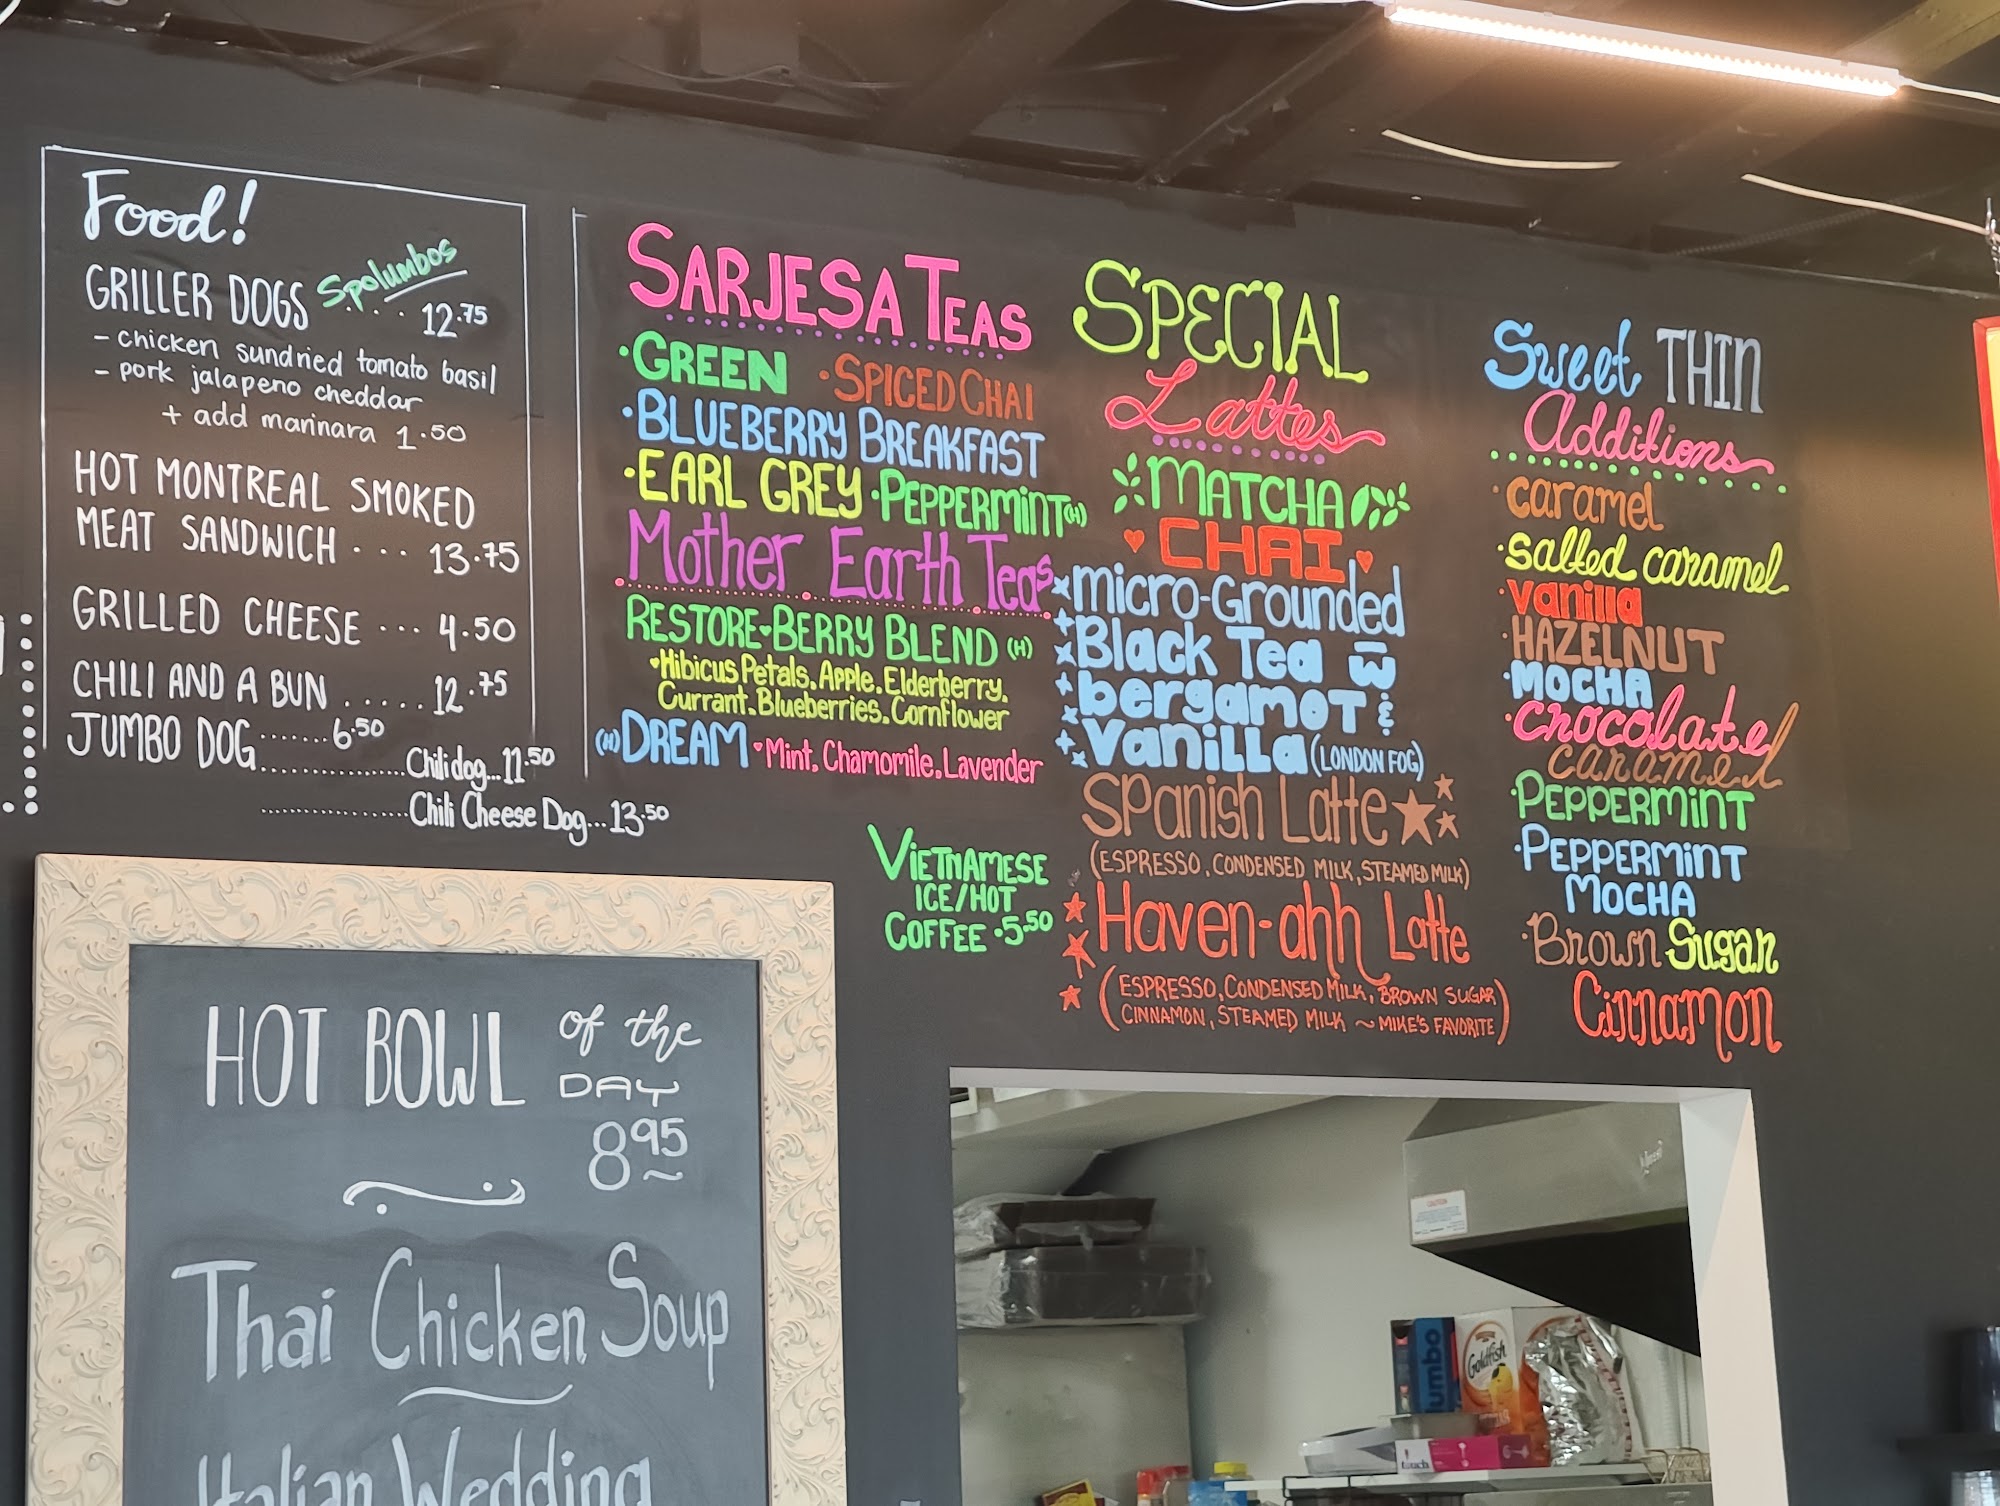 Food!
GRILLER DOGS Spolumbos .... 12.75
- chicken sundried tomato basil
- pork jalapeno cheddar
+ add marinara 1.50
HOT MONTREAL SMOKED
MEAT SANDWICH ... 13.75
GRILLED CHEESE ... 4.50
CHILI AND A BUN ..... 12.75
JUMBO DOG.......6.50
................Chili dog...11.50
................Chili Cheese Dog...13.50
HOT BOWL of the
DAY
8.95
Thai Chicken Soup
Italian Wedding
SARJESA TEAS
•GREEN •SPICED CHAI
•BLUEBERRY BREAKFAST
•EARL GREY •PEPPERMINT(H)
Mother Earth Teas
RESTORE•BERRY BLEND (H)
•Hibicus Petals. Apple. Elderberry.
Currant. Blueberries. Cornflower
(H) DREAM •Mint. Chamomile. Lavender
VIETNAMESE
ICE/HOT
COFFEE •5.50
SPECIAL
Lattes
MATCHA
CHAI
micro-Grounded
Black Tea w
bergamot &
Vanilla (LONDON FOG)
Spanish Latte
(ESPRESSO, CONDENSED MILK, STEAMED MILK)
Haven-ahh Latte
(ESPRESSO, CONDENSED MILK, BROWN SUGAR
CINNAMON, STEAMED MILK ~ MIKE'S FAVORITE)
Sweet THIN
Additions
•caramel
•salted caramel
•vanilla
•HAZELNUT
•MOCHA
•chocolate
caramel
•PEPPERMINT
•PEPPERMINT
MOCHA
•Brown Sugar
Cinnamon
CAUTION
umbo
Goldfish
touch